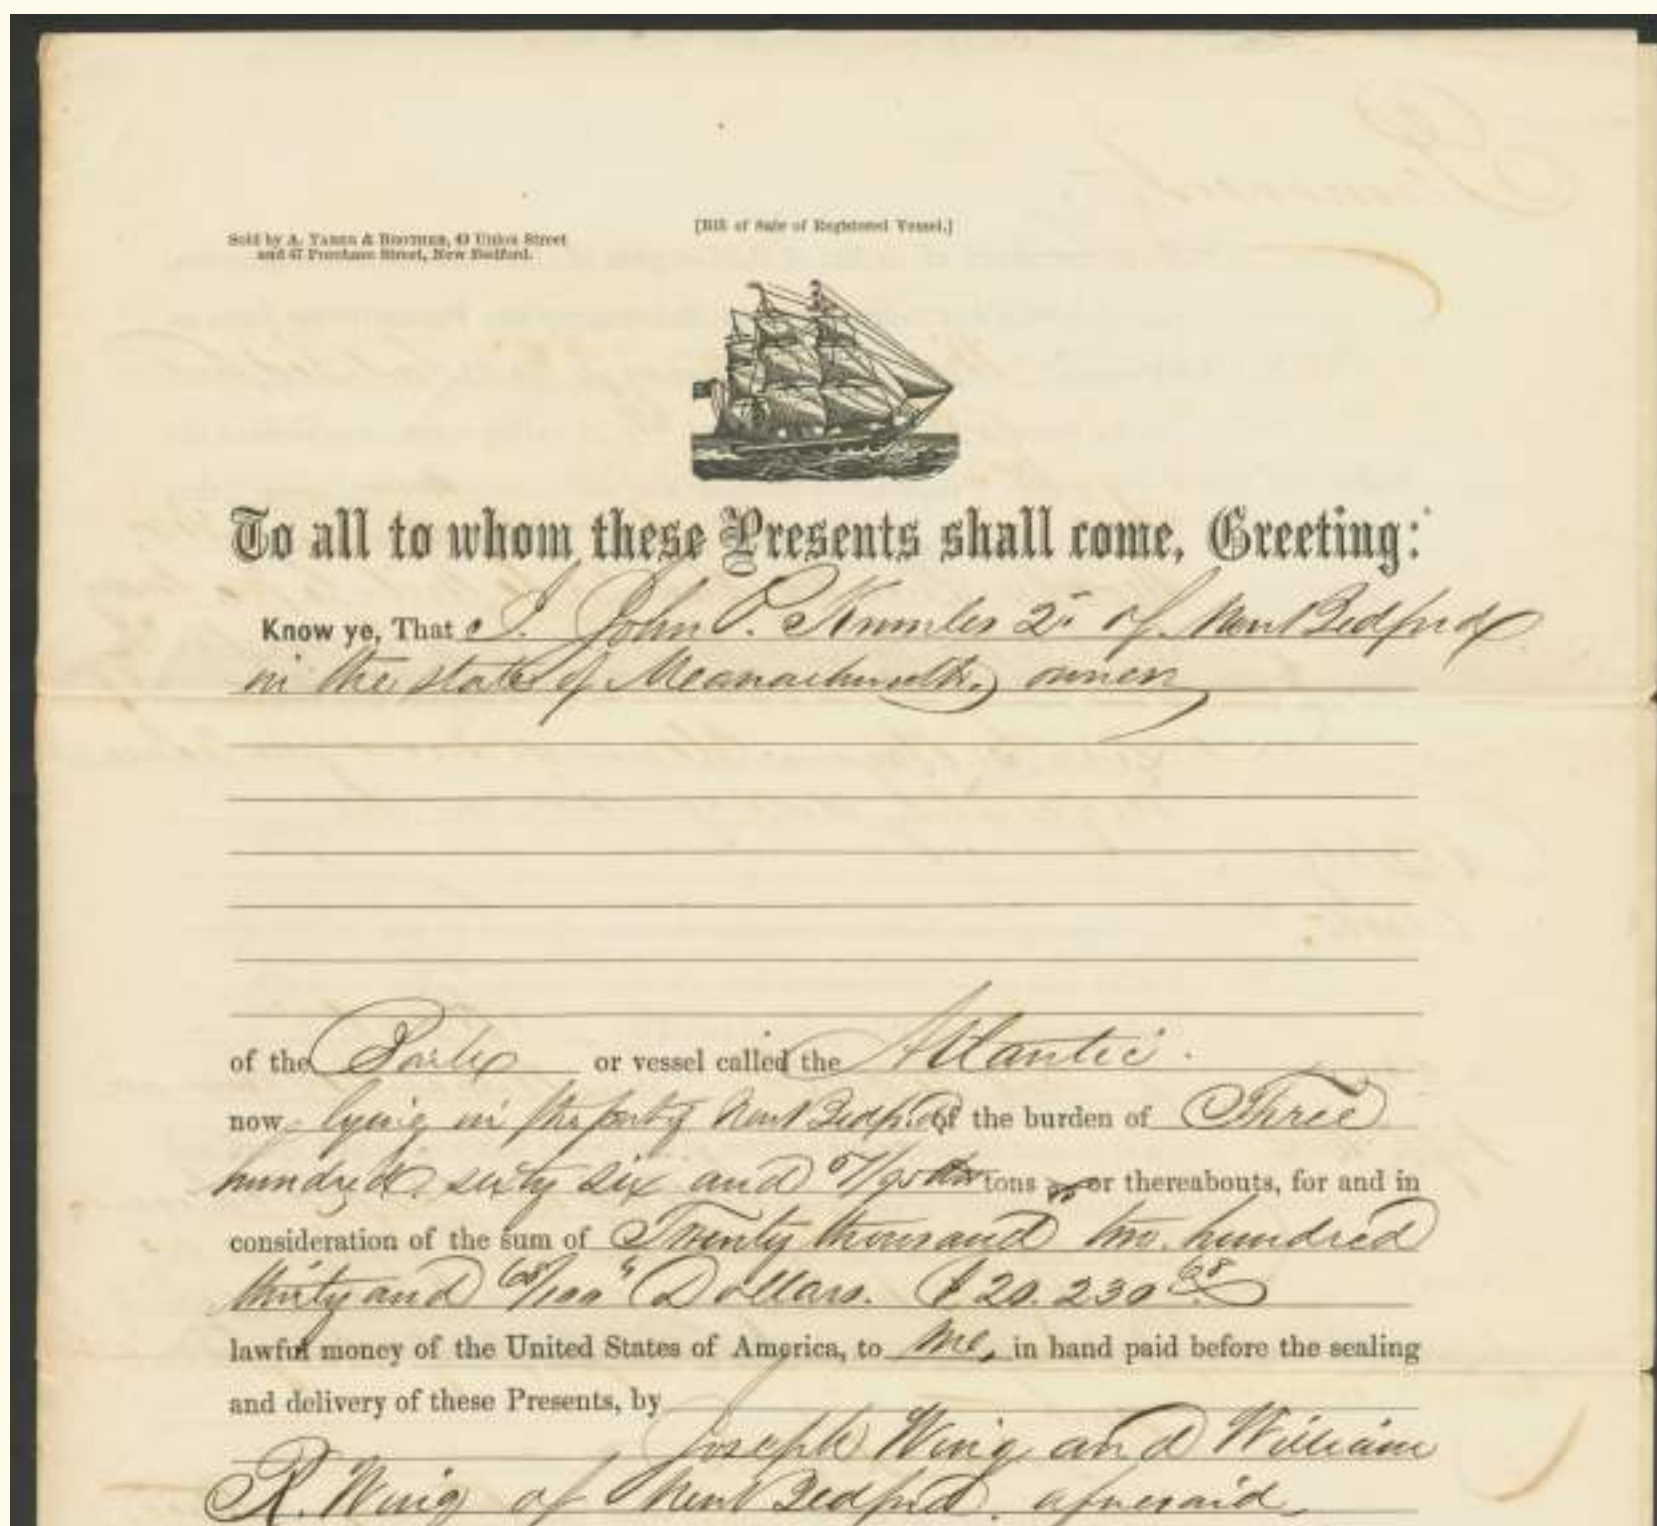 [Bill of Sale of Registered Vessel.]
Sold by A. TABER & BROTHER, 49 Union Street
and 67 Purchase Street, New Bedford.
To all to whom these Presents shall come, Greeting:
Know ye, That I. John P. Knowles 2d of New Bedford
in the state of Massachusetts, owner
of the Bark or vessel called the Atlantic.
now lying in the port of New Bedford of the burden of Three
hundred sixty six and /95ths tons or thereabouts, for and in
consideration of the sum of Twenty thousand two hundred
thirty and 68/100 Dollars. $20.230 68
lawful money of the United States of America, to me, in hand paid before the sealing
and delivery of these Presents, by
Joseph Wing and William
R. Wing of New Bedford aforesaid